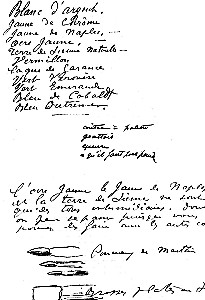 Blanc d'argent,
Jaune de Chrôme
Jaune de Naples, —
Ocre Jaune,
Terre de Sienne Naturelle —
Vermillon
Laque de Garance
Vert Véronèse
Vert Emeraude
Bleu de Cobalt
Bleu Outremer
= palette
grattoir
L'ocre Jaune le Jaune de Naples
et la terre de Sienne ne sont
que des tons intermédiaires, dont
on peut se passer puisque vous
pouvez les faire avec les autres co
Pinceaux de martre
brosses plates